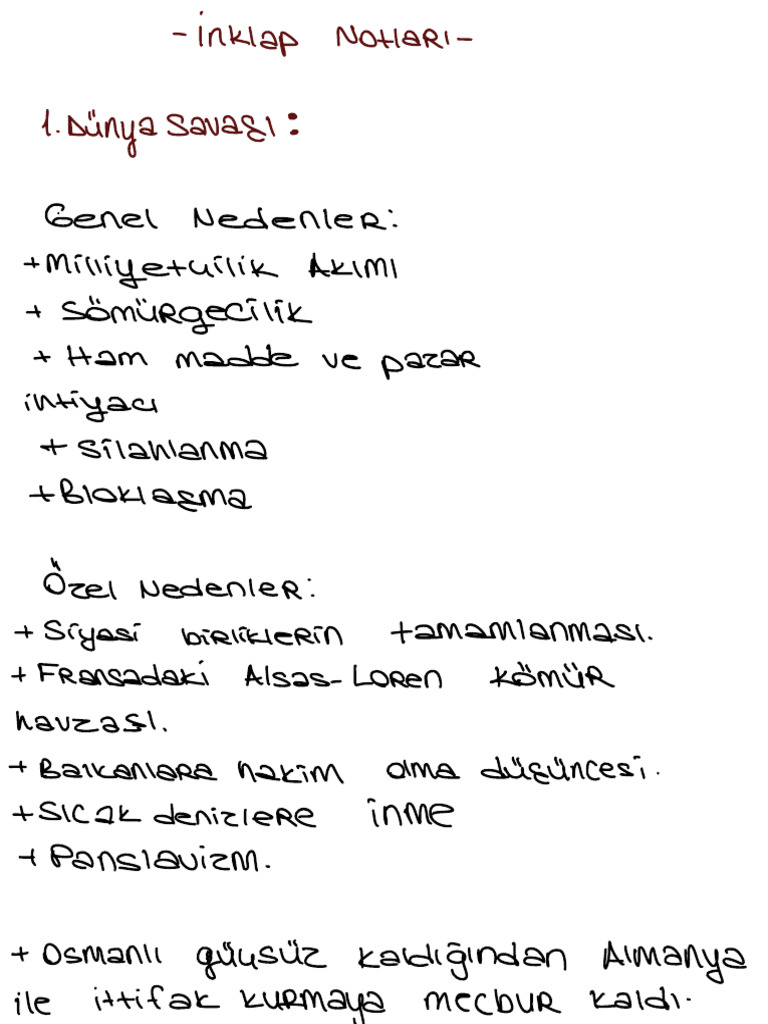 - İnklap Notları -
1. Dünya Savaşı :
Genel Nedenler:
+ Milliyetçilik Akımı
+ Sömürgecilik
+ Ham madde ve pazar
intiyacı
+ Silahlanma
+ Bloklaşma
Özel Nedenler:
+ Siyasi birliklerin tamamlanması.
+ Fransadaki Alsas-Loren kömür
havzası.
+ Balkanlara hakim olma düşüncesi.
+ Sıcak denizlere inme
+ Panslavizm.
+ Osmanlı güçsüz kaldığından Almanya
ile ittifak kurmaya mecbur kaldı.